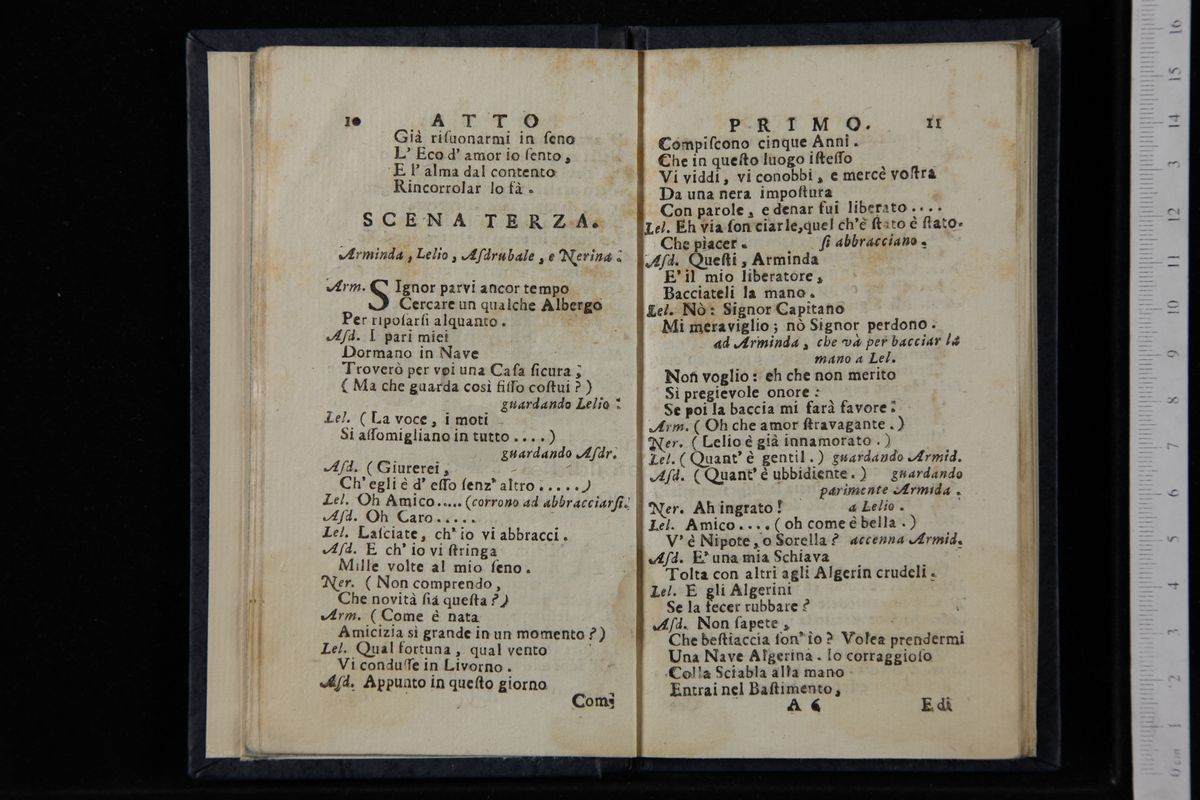 10 ATTO
Già risuonarmi in seno
L' Eco d' amor io sento,
E l' alma dal contento
Rincorrolar lo fà.
SCENA TERZA.
Arminda, Lelio, Asdrubale, e Nerina.
Arm. SIgnor parvi ancor tempo
Cercare un qualche Albergo
Per riposarsi alquanto.
Asd. I pari miei
Dormano in Nave
Troverò per voi una Casa sicura;
(Ma che guarda così fisso costui?)
guardando Lelio.
Lel. (La voce, i moti
Si assomigliano in tutto....)
guardando Asdr.
Asd. (Giurerei,
Ch' egli è d' esso senz' altro.....)
Lel. Oh Amico..... (corrono ad abbracciarsi.
Asd. Oh Caro.....
Lel. Lasciate, ch' io vi abbracci.
Asd. E ch' io vi stringa
Mille volte al mio seno.
Ner. (Non comprendo,
Che novità sia questa?)
Arm. (Come è nata
Amicizia sì grande in un momento?)
Lel. Qual fortuna, qual vento
Vi condusse in Livorno.
Asd. Appunto in questo giorno
Com-
PRIMO. 11
Compiscono cinque Anni.
Che in questo luogo istesso
Vi viddi, vi conobbi, e mercè vostra
Da una nera impostura
Con parole, e denar fui liberato....
Lel. Eh via son ciarle, quel ch'è stato è stato.
Che piacer. si abbracciano.
Asd. Questi, Arminda
E' il mio liberatore,
Bacciateli la mano.
Lel. Nò: Signor Capitano
Mi meraviglio; nò Signor perdono.
ad Arminda, che và per bacciar la
mano a Lel.
Non voglio: eh che non merito
Sì pregievole onore:
Se poi la baccia mi farà favore.
Arm. (Oh che amor stravagante.)
Ner. (Lelio è già innamorato.)
Lel. (Quant' è gentil.) guardando Armid.
Asd. (Quant' è ubbidiente.) guardando
parimente Armida.
Ner. Ah ingrato! a Lelio.
Lel. Amico.... (oh come è bella.)
V' è Nipote, o Sorella? accenna Armid.
Asd. E' una mia Schiava
Tolta con altri agli Algerin crudeli.
Lel. E gli Algerini
Se la fecer rubbare?
Asd. Non sapete,
Che bestiaccia son' io? Volea prendermi
Una Nave Algerina. Io corraggioso
Colla Sciabla alla mano
Entrai nel Bastimento,
A 6 E di
0 cm 1 2 3 4 5 6 7 8 9 10 11 12 13 14 15 16